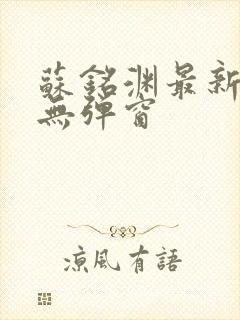 蘇銘淵最新
無彈窗
涼風有語